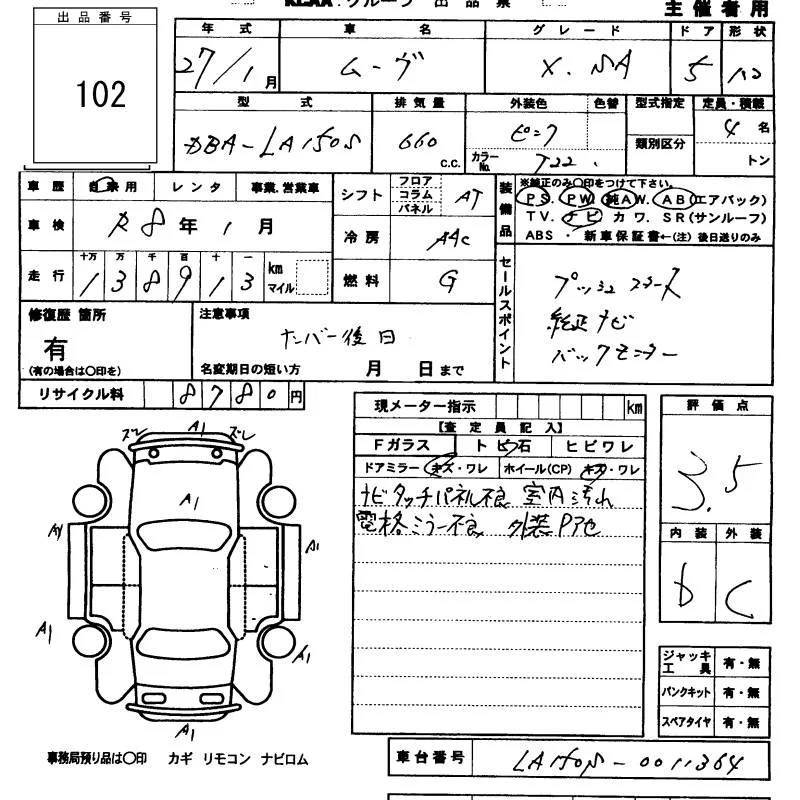 KLAA.グループ 出品票
主催者用
出品番号
102
年式 車名 グレード ドア 形状
27/1月 ムーヴ X.SA 5
型式 排気量 外装色 色替 型式指定 定員・積載
DBA-LA150S 660 c.c. ピンク 類別区分 4名
カラーNo. T22 トン
車歴 自家用 レンタ 事業.営業車
シフト フロア コラム パネル AT
装備品
※純正のみ○印をつけて下さい。
PS. PW. 純AW. AB(エアバッグ)
TV. ナビ カワ. SR(サンルーフ)
ABS ・ 新車保証書←(注) 後日送りのみ
車検 R8年1月
冷房 AAC
走行 十万 万 千 百 十 一
138913 km マイル
燃料 G
セールスポイント
プッシュスタート
純正ナビ
バックモニター
修復歴 箇所
有
(有の場合は○印を)
注意事項
ナンバー後日
名変期日の短い方 月 日まで
リサイクル料 8780円
現メーター指示 km
【査定員記入】
Fガラス トビ石 ヒビワレ
ドアミラー キズ・ワレ ホイール(CP) キズ・ワレ
ナビタッチパネル不良 室内汚れ
電格ミラー不良 外装Pアセ
評価点
3.5
内装 外装
D C
ズレ A1 ズレ
A1
A1 A1
A1 A1
A1
ジャッキ工具 有・無
パンクキット 有・無
スペアタイヤ 有・無
事務局預り品は○印 カギ リモコン ナビロム
車台番号 LA150S-0011364